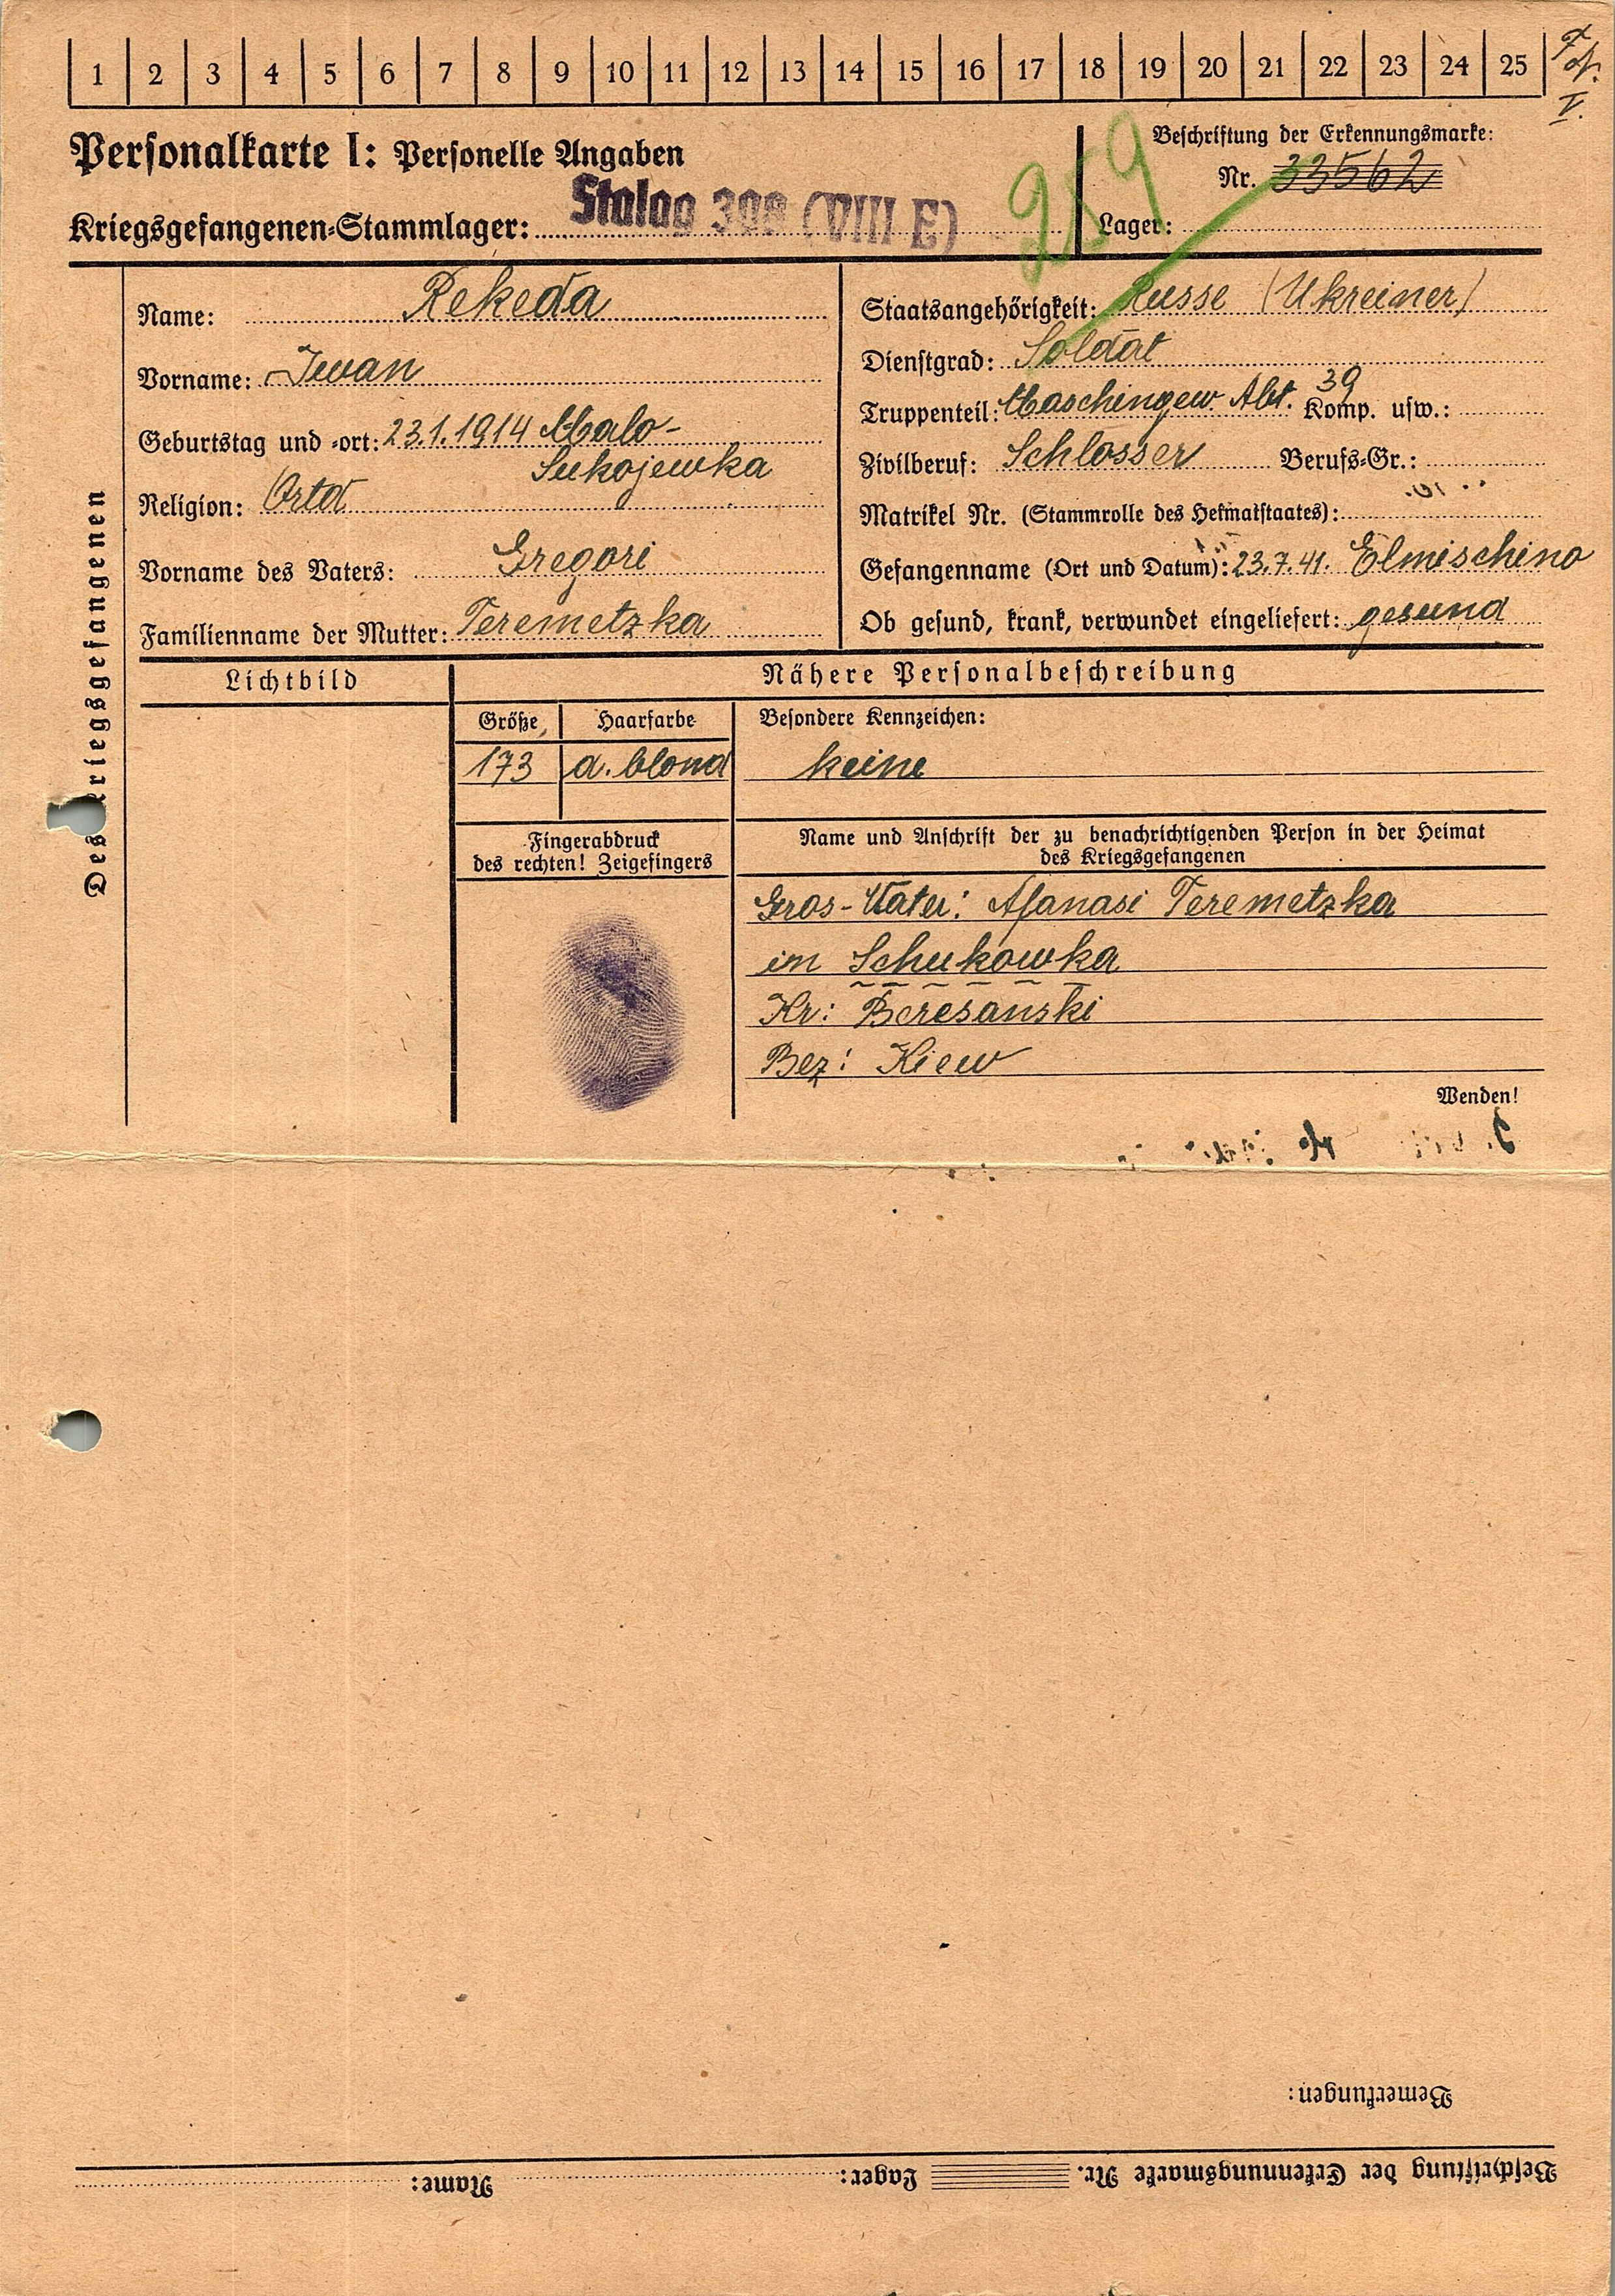 1 2 3 4 5 6 7 8 9 10 11 12 13 14 15 16 17 18 19 20 21 22 23 24 25
V.
Personalkarte I: Personelle Angaben
Beschriftung der Erkennungsmarke:
Nr. 33562
Kriegsgefangenen-Stammlager: Stalag 308 (VIII E)
259
Lager:
Des Kriegsgefangenen
Name: Rekeda
Vorname: Iwan
Geburtstag und -ort: 23.1.1914 Malo-
Sukojewka
Religion: Ortd
Vorname des Vaters: Gregori
Familienname der Mutter: Teremetzka
Staatsangehörigkeit: Russe (Ukreiner)
Dienstgrad: Soldat
Truppenteil: Maschingew. Abt. 39 Komp. usw.:
Zivilberuf: Schlosser Berufs-Gr.:
Matrikel Nr. (Stammrolle des Heimatstaates):
Gefangenname (Ort und Datum): 23.7.41. Elmischino
Ob gesund, krank, verwundet eingeliefert: gesund
Lichtbild
Nähere Personalbeschreibung
Größe Haarfarbe Besondere Kennzeichen:
173 d. blond keine
Fingerabdruck
des rechten! Zeigefingers
Name und Anschrift der zu benachrichtigenden Person in der Heimat
des Kriegsgefangenen
Gros-Vater: Afanasi Teremetzka
in Schukowka
Kr: Beresanski
Bez: Kiew
Wenden!
Bemerkungen:
Beschriftung der Erkennungsmarke Nr. Lager: Name: